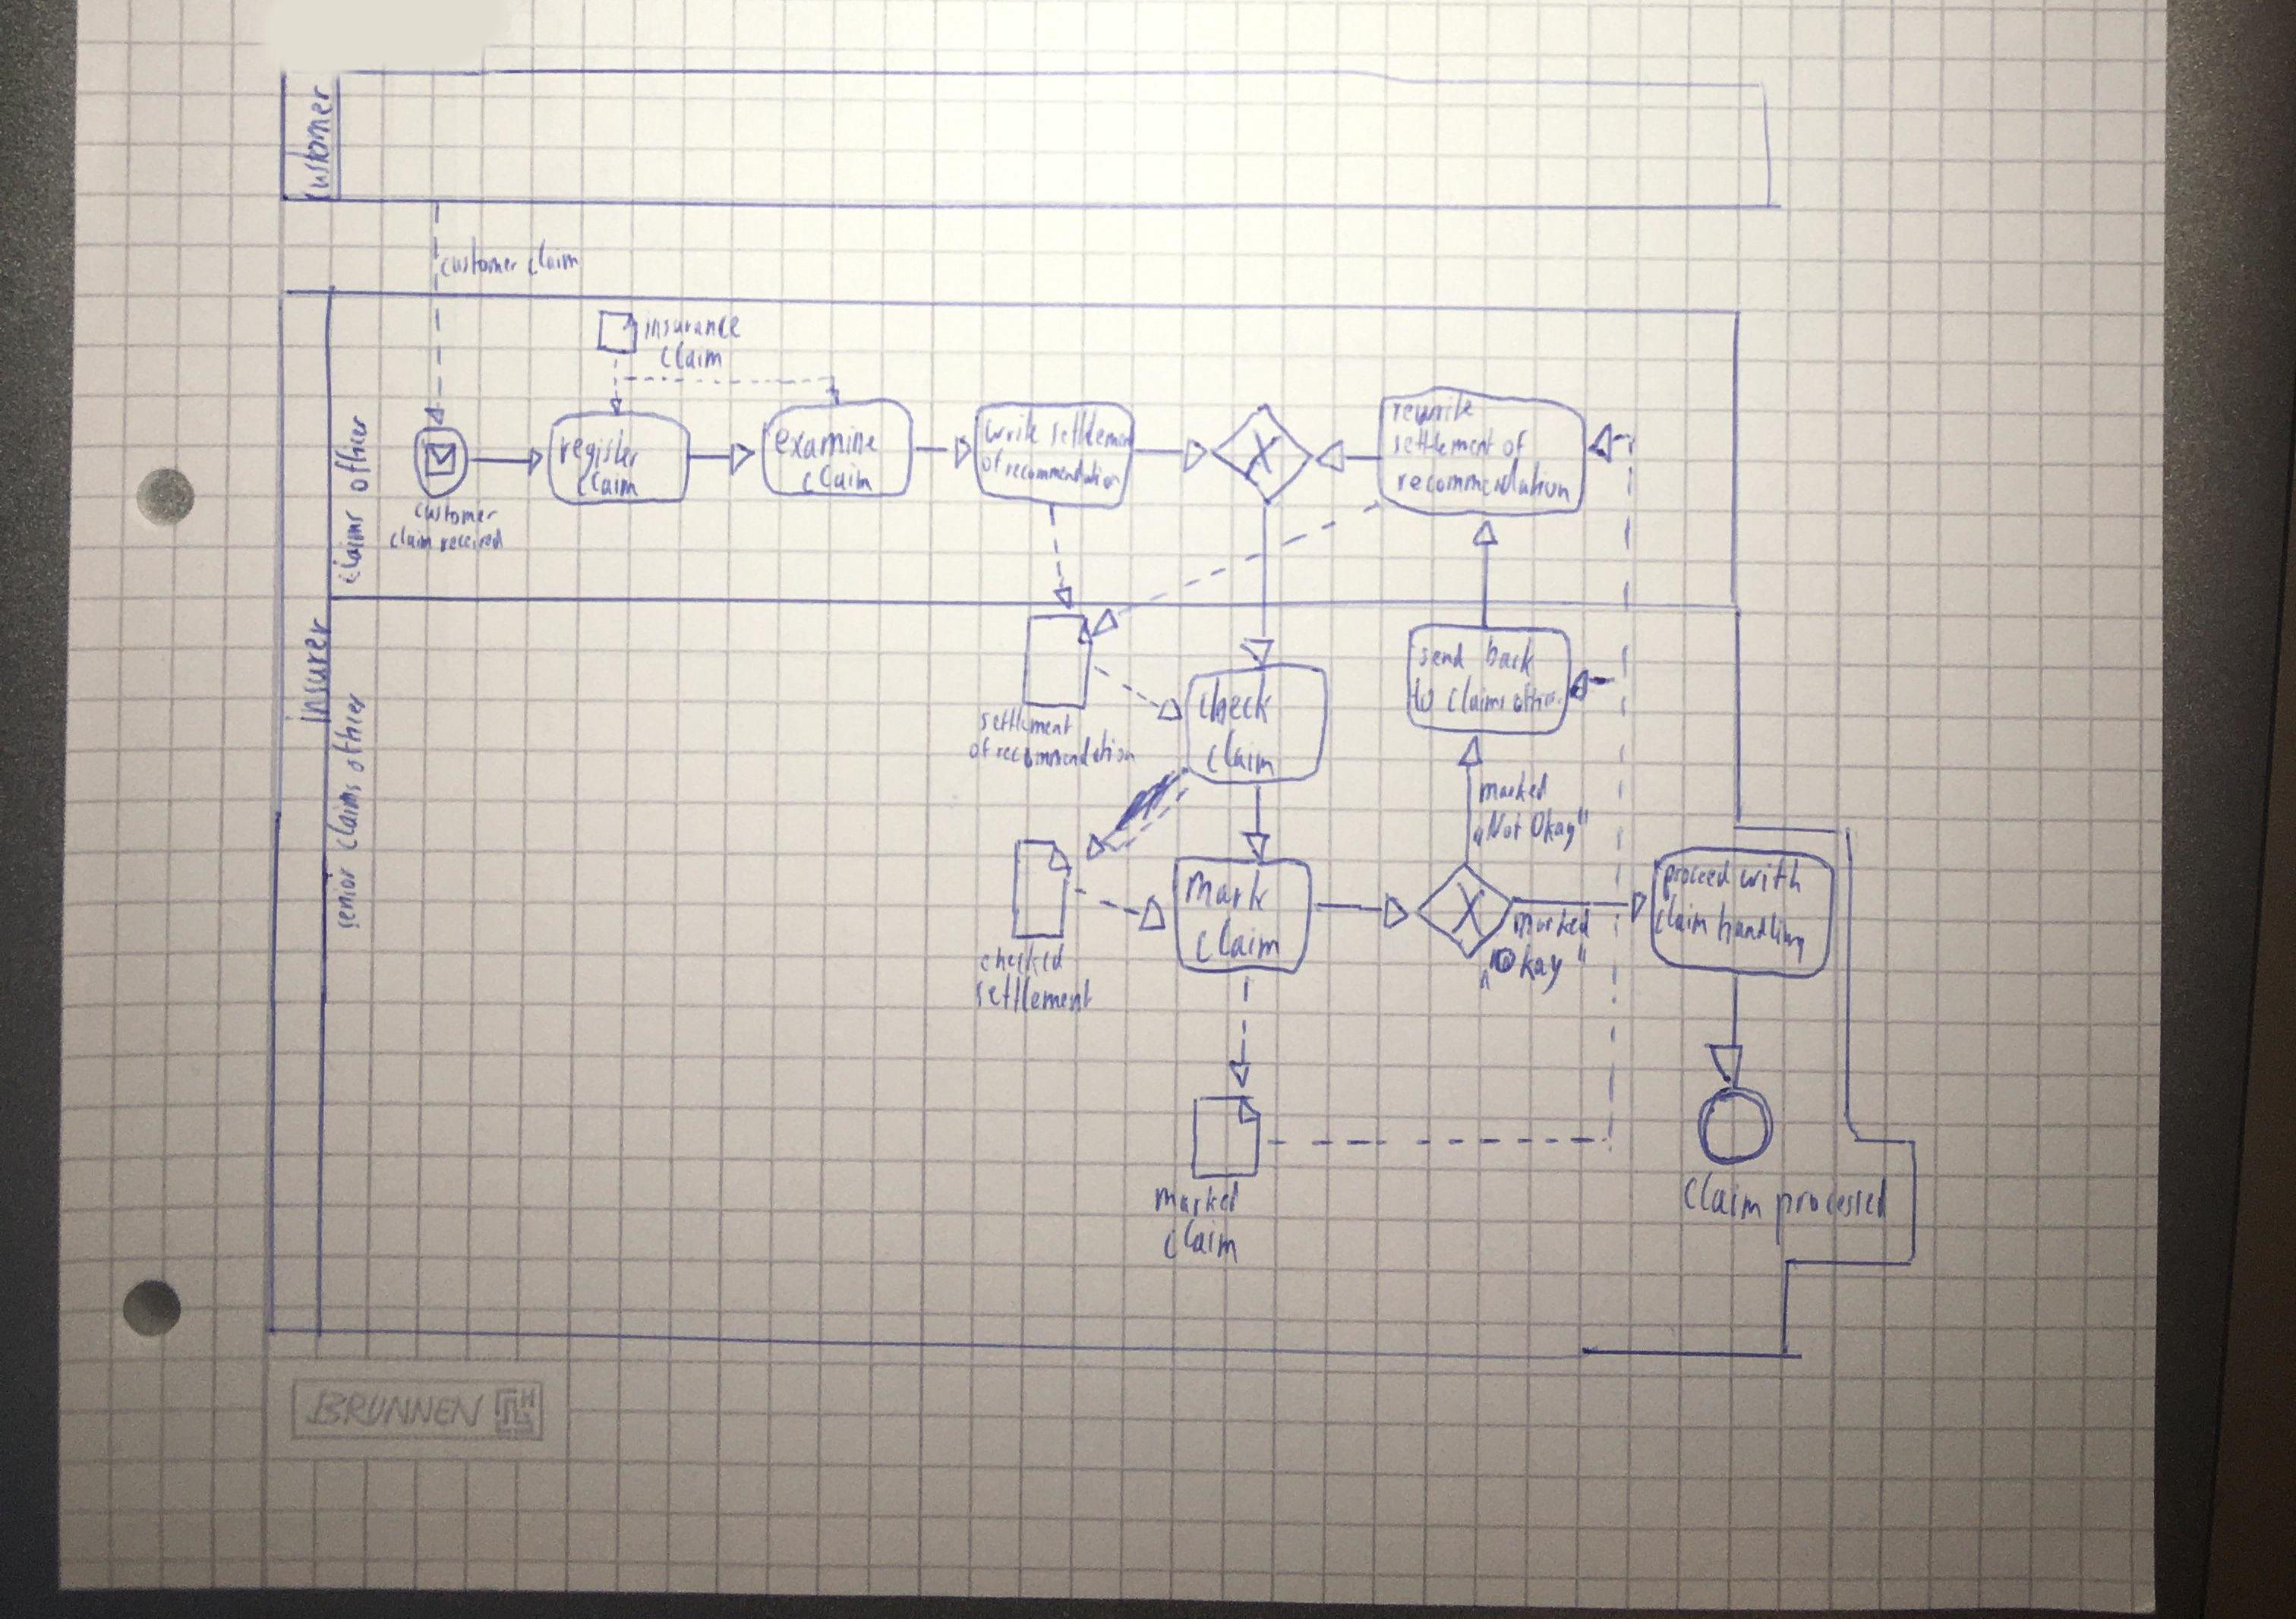 customer
customer claim
insurance
claim
insurer
claims officer
customer
claim received
register
claim
examine
claim
write settlement
of recommendation
X
rewrite
settlement of
recommendation
senior claims officer
settlement
of recommendation
check
claim
send back
to claims officer
marked
„Not Okay"
checked
settlement
Mark
claim
X
marked
„Okay"
proceed with
claim handling
Marked
claim
Claim processed
BRUNNEN